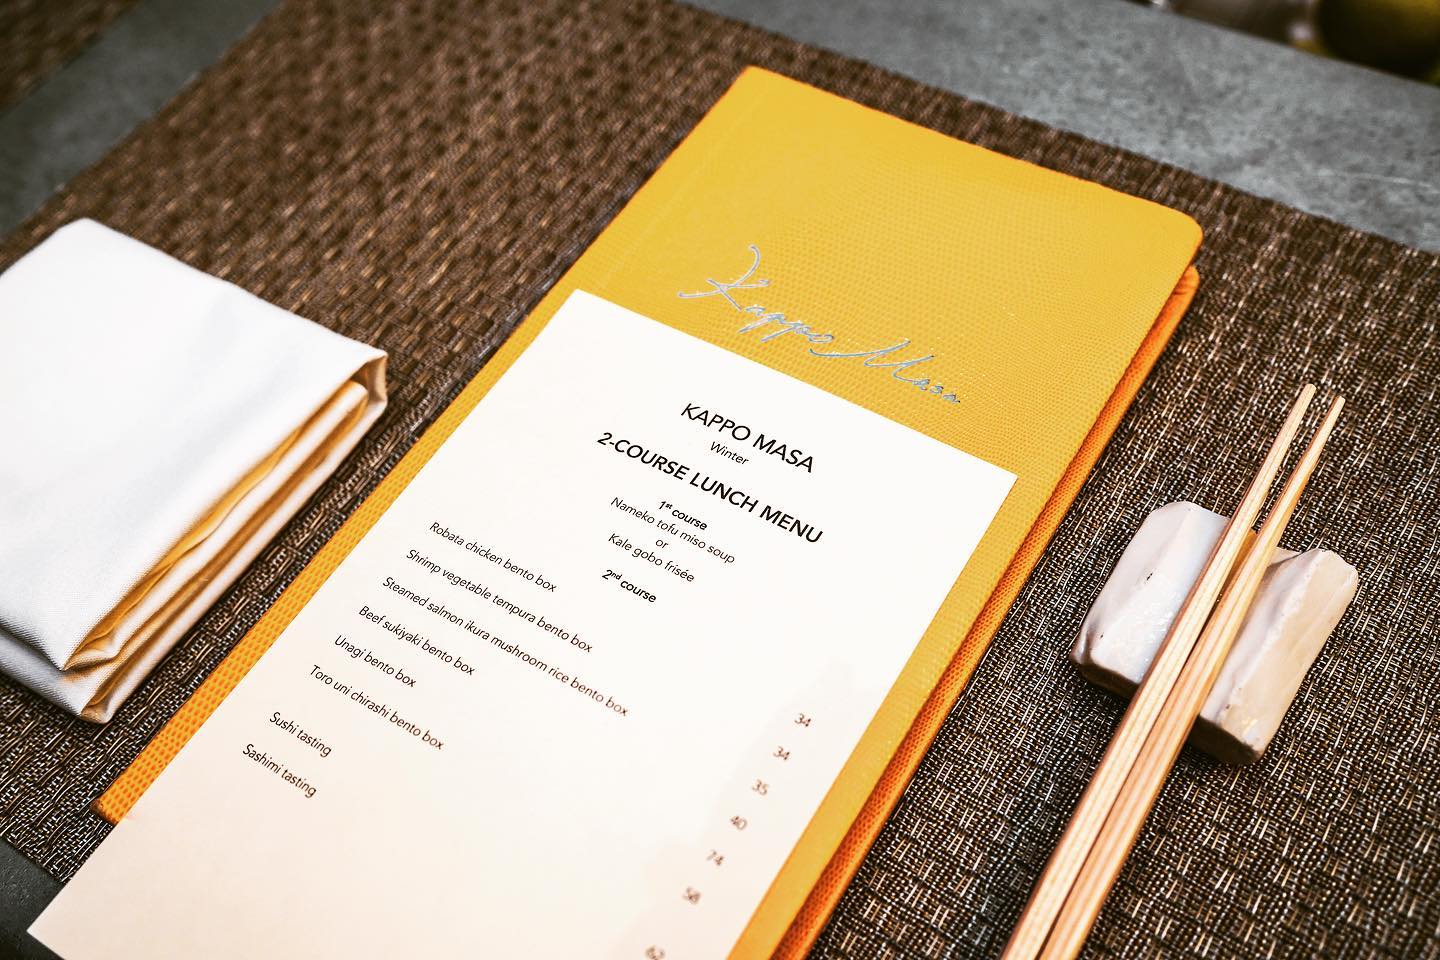 Kappo Masa
KAPPO MASA
Winter
2-COURSE LUNCH MENU
1st course
Nameko tofu miso soup
or
Kale gobo frisée
2nd course
Robata chicken bento box 34
Shrimp vegetable tempura bento box 34
Steamed salmon ikura mushroom rice bento box 35
Beef sukiyaki bento box 40
Unagi bento box 74
Toro uni chirashi bento box 58
Sushi tasting 62
Sashimi tasting